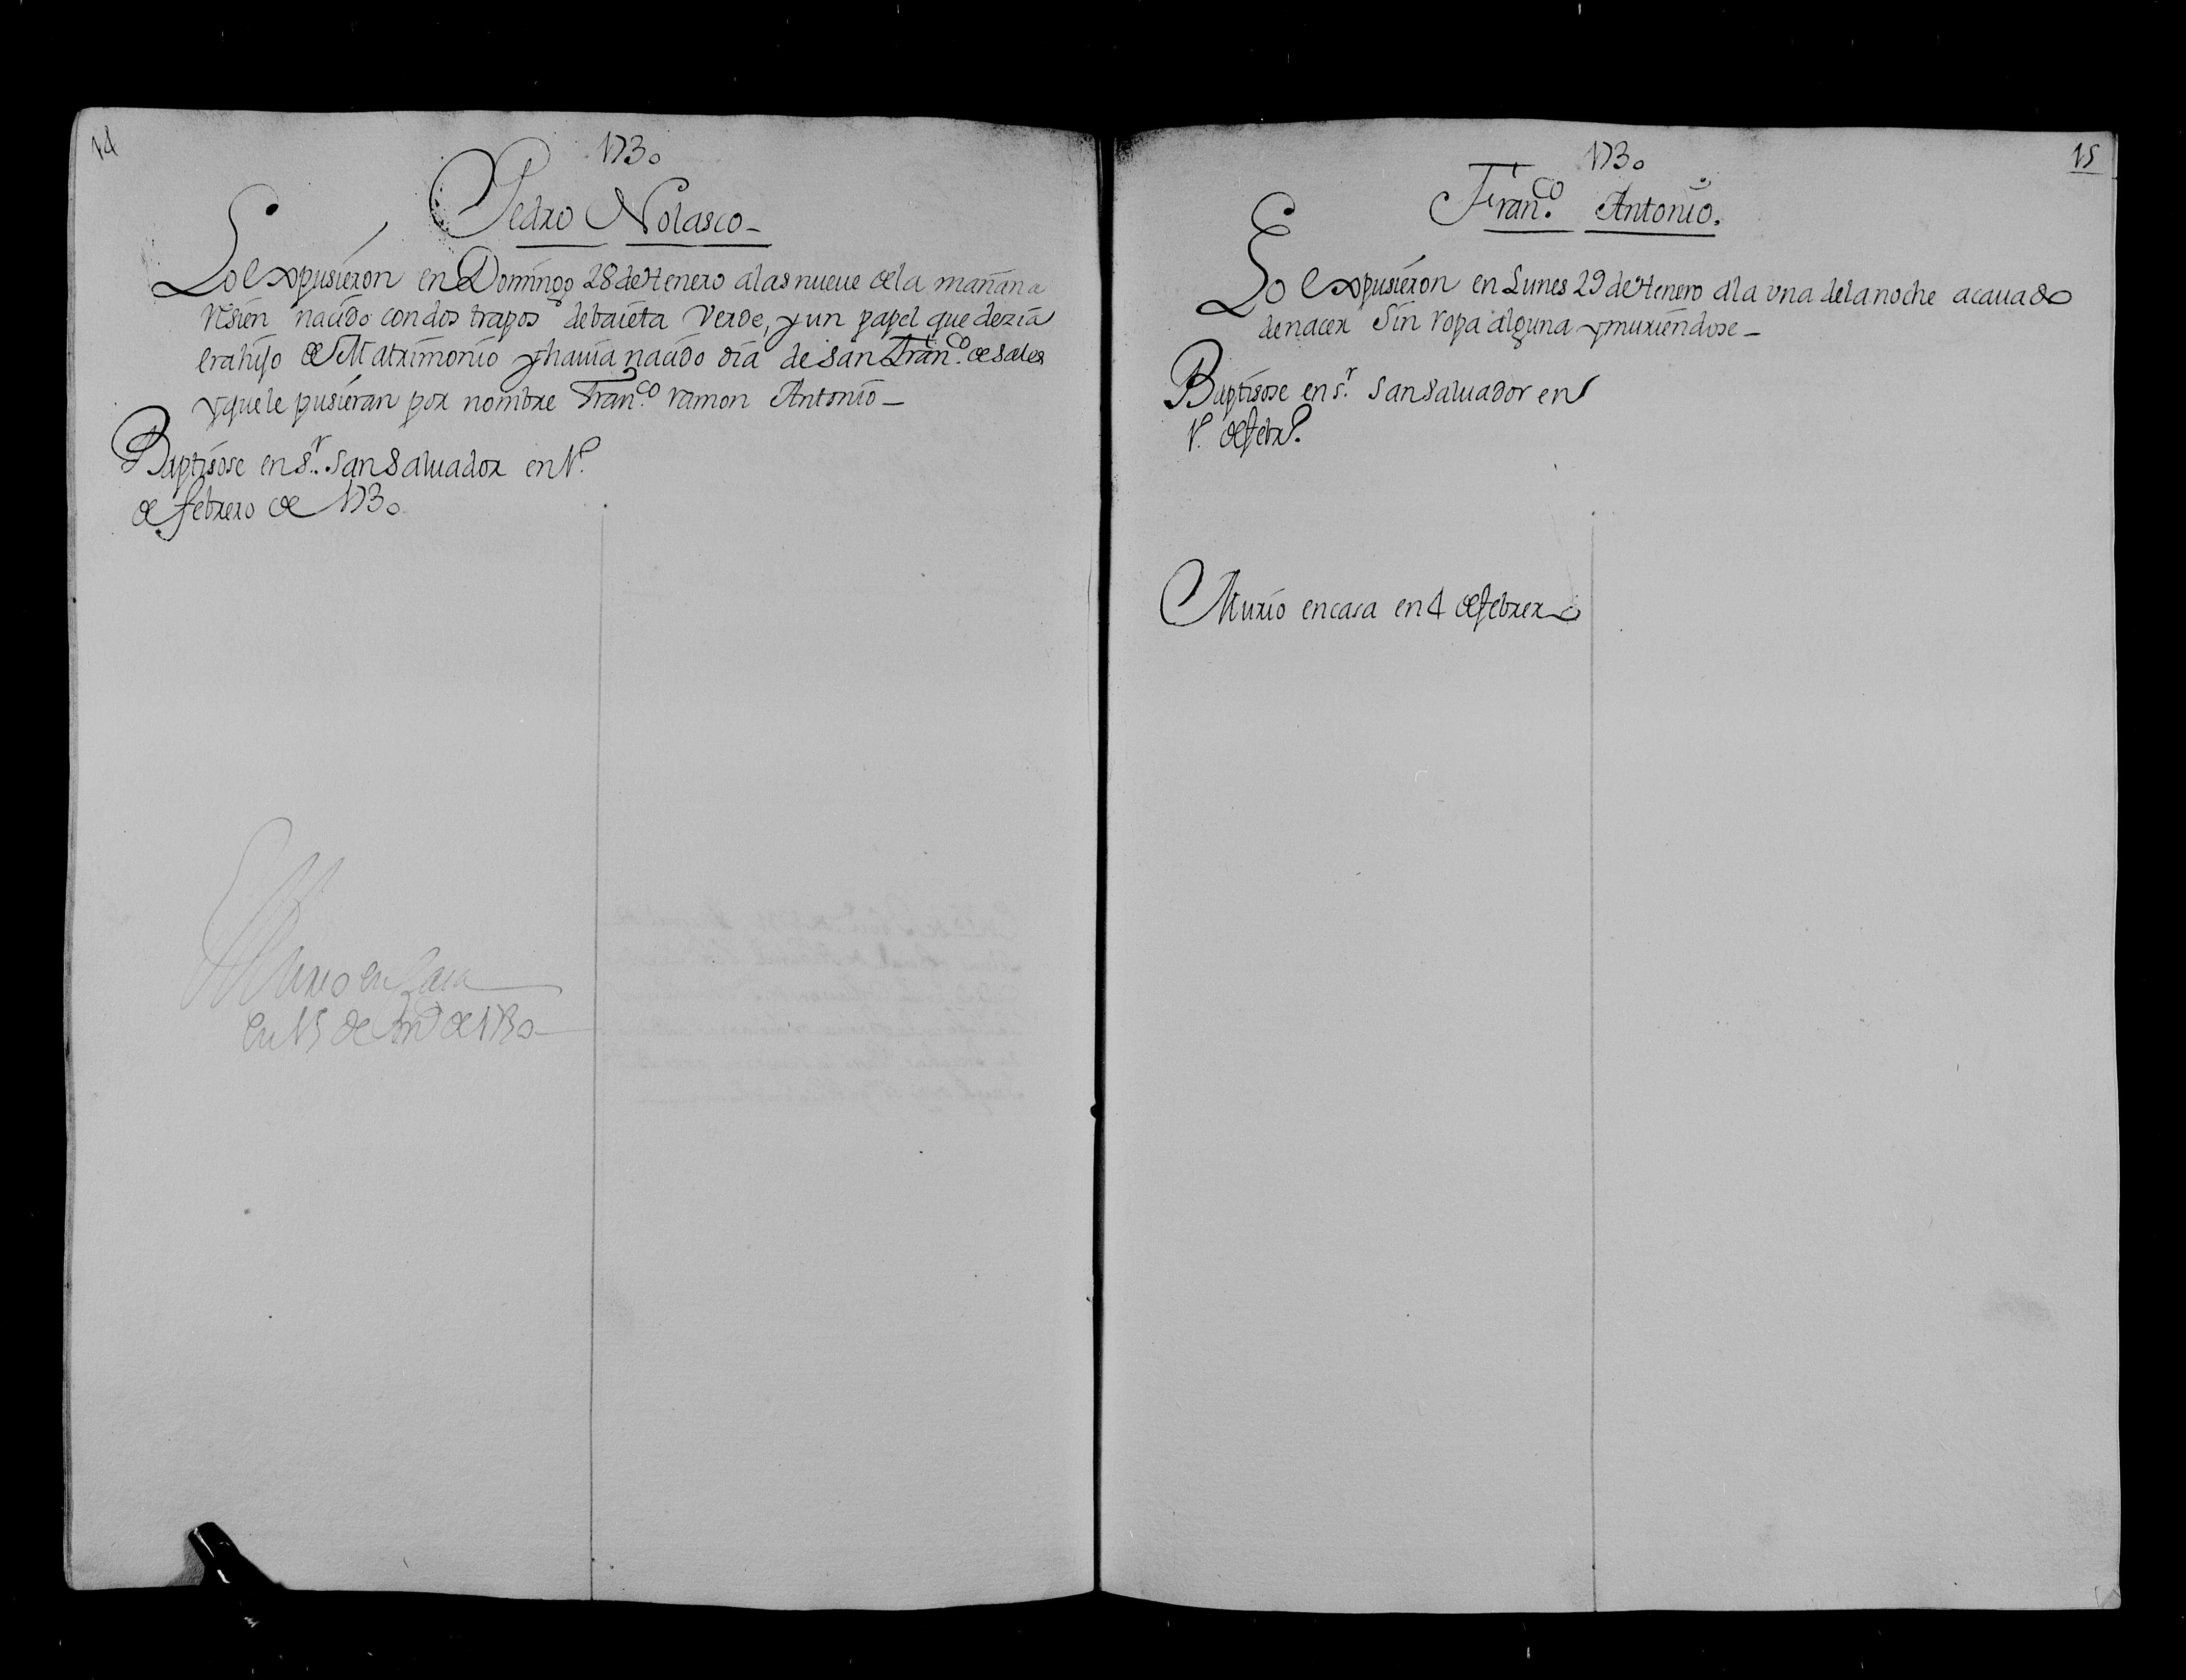 14
1730
Pedro Nolasco
Lo expusieron en Domingo 28 de Henero a las nueve de la mañana
risien nacido con dos trapos de baieta verde, y un papel que dezia
era hijo de Matrimonio y havia nacido dia de san Franco. de sales
y que le pusieran por nombre Franco. ramon Antonio
Baptisose en Sr. San Saluador en 1o.
de febrero de 1730
Murio en Casa
en 15 de de 1730
15
1730
Franco. Antonio.
Lo expusieron en Lunes 29 de Henero a la vna de la noche acauado
de nacer sin ropa alguna y muriendose
Baptisose en Sr. San Saluador en
1o. de febro.
Murio en casa en 4 de febrero